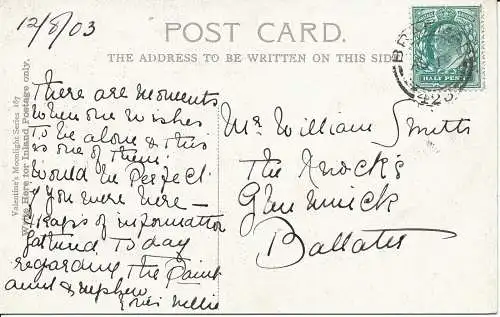 12/8/03
POST CARD.
THE ADDRESS TO BE WRITTEN ON THIS SIDE
HALF PENNY
423
Valentine's Moonlight Series 167
Write Here for Inland Postage only.
There are moments
when one wishes
to be alone & this
is one of them.
Would be Perfect
if you were here —
Heaps of information
gathered Today
regarding The
aunt & nephew
Nellie
Mr William Smith
The Knocks
Glenmuick
Ballater